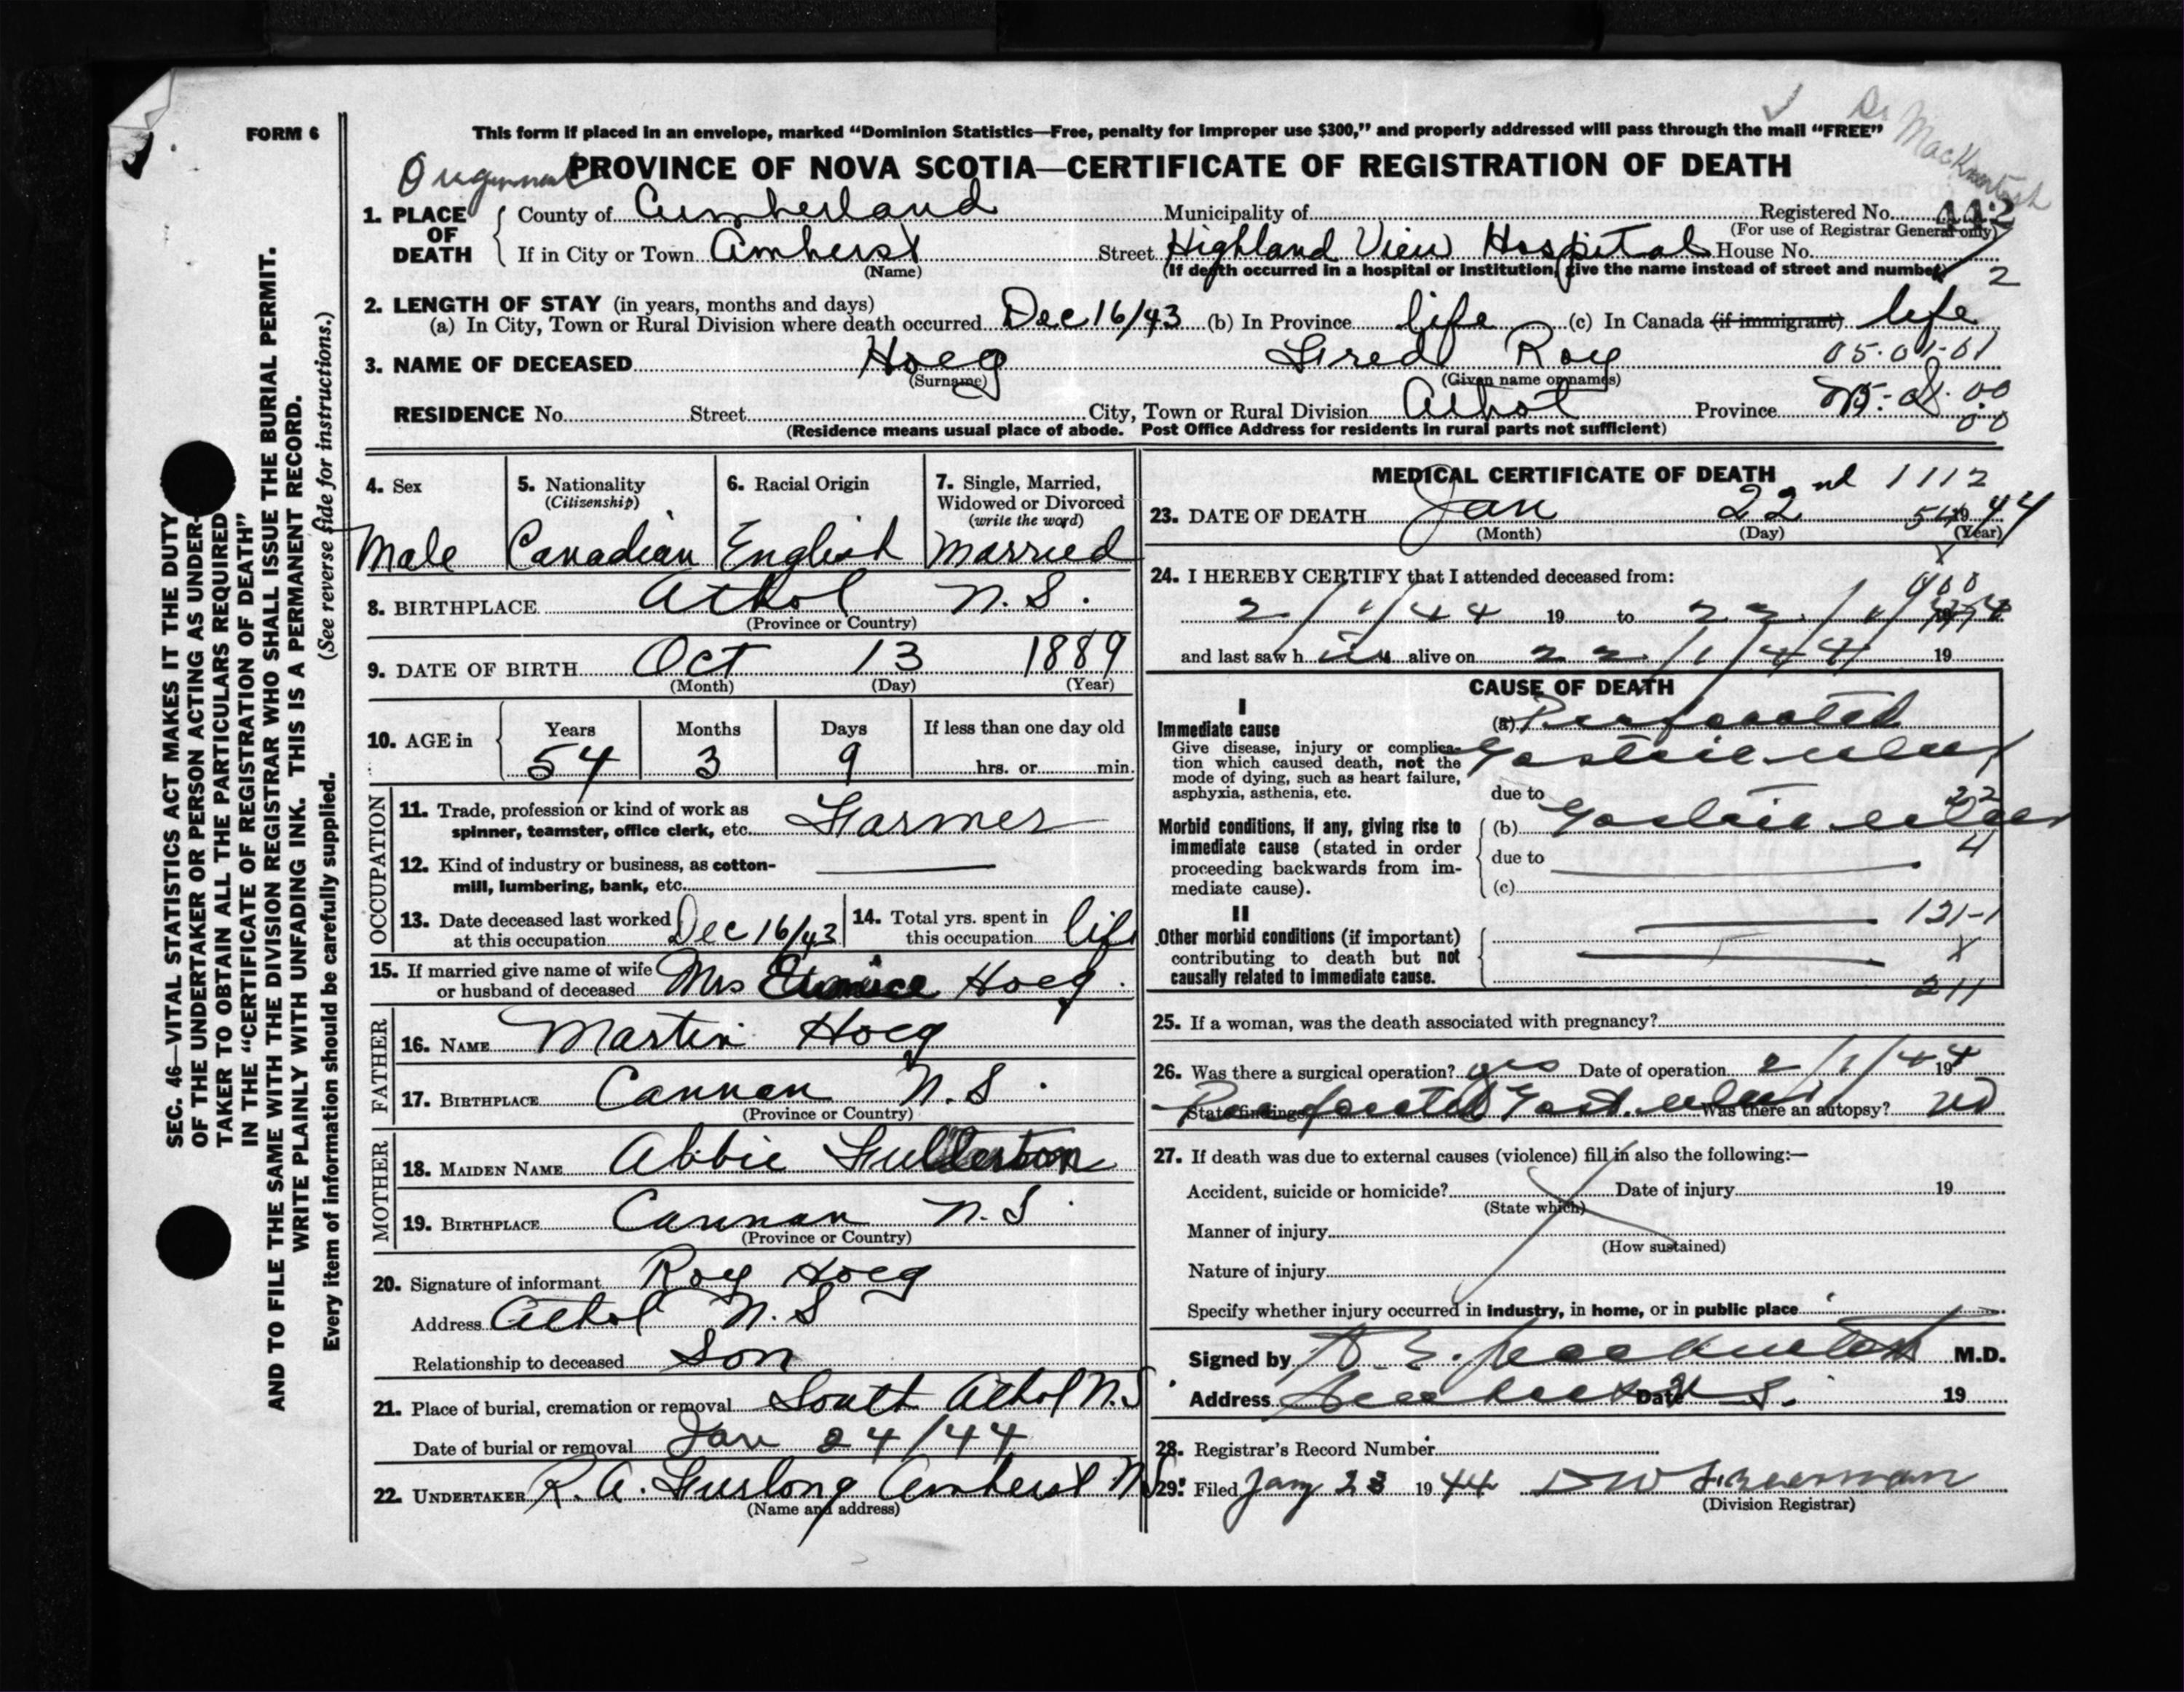 FORM 6
This form if placed in an envelope, marked “Dominion Statistics—Free, penalty for improper use $300,” and properly addressed will pass through the mail “FREE”
Dr MacKintosh
Original
PROVINCE OF NOVA SCOTIA—CERTIFICATE OF REGISTRATION OF DEATH
1. PLACE OF DEATH
County of Cumberland Municipality of Registered No. 112
(For use of Registrar General only)
If in City or Town Amherst Street Highland View Hospital House No.
(Name) (If death occurred in a hospital or institution, give the name instead of street and number) 2
2. LENGTH OF STAY (in years, months and days)
(a) In City, Town or Rural Division where death occurred Dec 16/43 (b) In Province life (c) In Canada (if immigrant) life
3. NAME OF DECEASED Hoeg Fred Roy 05.01-01
(Surname) (Given name or names)
RESIDENCE No. Street City, Town or Rural Division Athol Province
(Residence means usual place of abode. Post Office Address for residents in rural parts not sufficient)
4. Sex
Male
5. Nationality
(Citizenship)
Canadian
6. Racial Origin
English
7. Single, Married,
Widowed or Divorced
(write the word)
Married
8. BIRTHPLACE Athol N.S.
(Province or Country)
9. DATE OF BIRTH Oct 13 1889
(Month) (Day) (Year)
10. AGE in
Years Months Days If less than one day old
54 3 9 hrs. or min.
OCCUPATION
11. Trade, profession or kind of work as
spinner, teamster, office clerk, etc. Farmer
12. Kind of industry or business, as cotton-
mill, lumbering, bank, etc.
13. Date deceased last worked
at this occupation Dec 16/43
14. Total yrs. spent in
this occupation life
15. If married give name of wife
or husband of deceased Mrs Eunice Hoeg
FATHER
16. NAME Martin Hoeg
17. BIRTHPLACE Cannan N.S.
(Province or Country)
MOTHER
18. MAIDEN NAME Abbie Fullerton
19. BIRTHPLACE Cannan N.S.
(Province or Country)
20. Signature of informant Roy Hoeg
Address Athol N.S
Relationship to deceased Son
21. Place of burial, cremation or removal South Athol N.S
Date of burial or removal Jan 24/44
22. UNDERTAKER R.A. Furlong Amherst N.S.
(Name and address)
MEDICAL CERTIFICATE OF DEATH
1112
23. DATE OF DEATH Jan 22nd 1944
(Month) (Day) (Year)
24. I HEREBY CERTIFY that I attended deceased from:
2/1/44 19 to 22/1/44
and last saw him alive on 22/1/44 19
CAUSE OF DEATH
I
Immediate cause
Give disease, injury or complica-
tion which caused death, not the
mode of dying, such as heart failure,
asphyxia, asthenia, etc.
(a) Perforated
Gastric ulcer
due to
Morbid conditions, if any, giving rise to
immediate cause (stated in order
proceeding backwards from im-
mediate cause).
(b) Gastric ulcer
due to
(c)
II
Other morbid conditions (if important)
contributing to death but not
causally related to immediate cause.
121-1
X
211
25. If a woman, was the death associated with pregnancy?
26. Was there a surgical operation? yes Date of operation 2/1/44 19
State findings Perforated Gast. ulcer Was there an autopsy? no
27. If death was due to external causes (violence) fill in also the following:—
Accident, suicide or homicide? Date of injury 19
(State which)
Manner of injury
(How sustained)
Nature of injury
Specify whether injury occurred in industry, in home, or in public place
Signed by MackIntosh M.D.
Address Amherst N.S. Date 19
28. Registrar's Record Number
29. Filed Jany 23 1944 D W
(Division Registrar)
SEC. 46—VITAL STATISTICS ACT MAKES IT THE DUTY
OF THE UNDERTAKER OR PERSON ACTING AS UNDER-
TAKER TO OBTAIN ALL THE PARTICULARS REQUIRED
IN THE “CERTIFICATE OF REGISTRATION OF DEATH”
AND TO FILE THE SAME WITH THE DIVISION REGISTRAR WHO SHALL ISSUE THE BURIAL PERMIT.
WRITE PLAINLY WITH UNFADING INK. THIS IS A PERMANENT RECORD.
Every item of information should be carefully supplied. (See reverse side for instructions.)